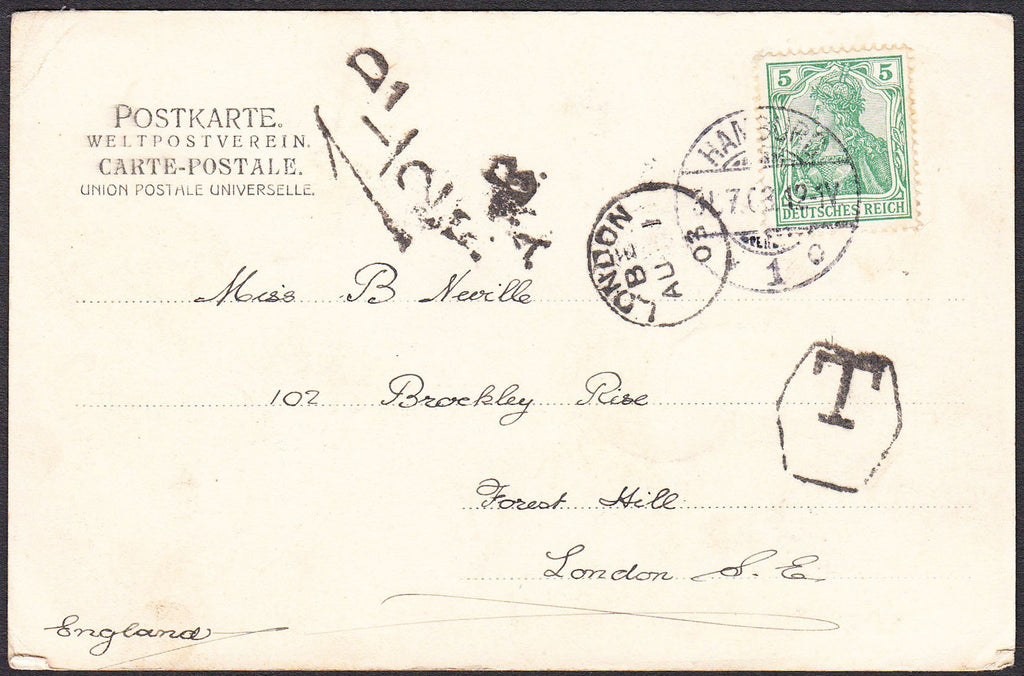 POSTKARTE.
WELTPOSTVEREIN.
CARTE-POSTALE.
UNION POSTALE UNIVERSELLE.
D1
5 5
DEUTSCHES REICH
HAMBURG
7.03.12-1V
1 1 c
LONDON
AU 1
03
T
Miss B Neville
102 Brockley Rise
Forest Hill
London S.E.
England